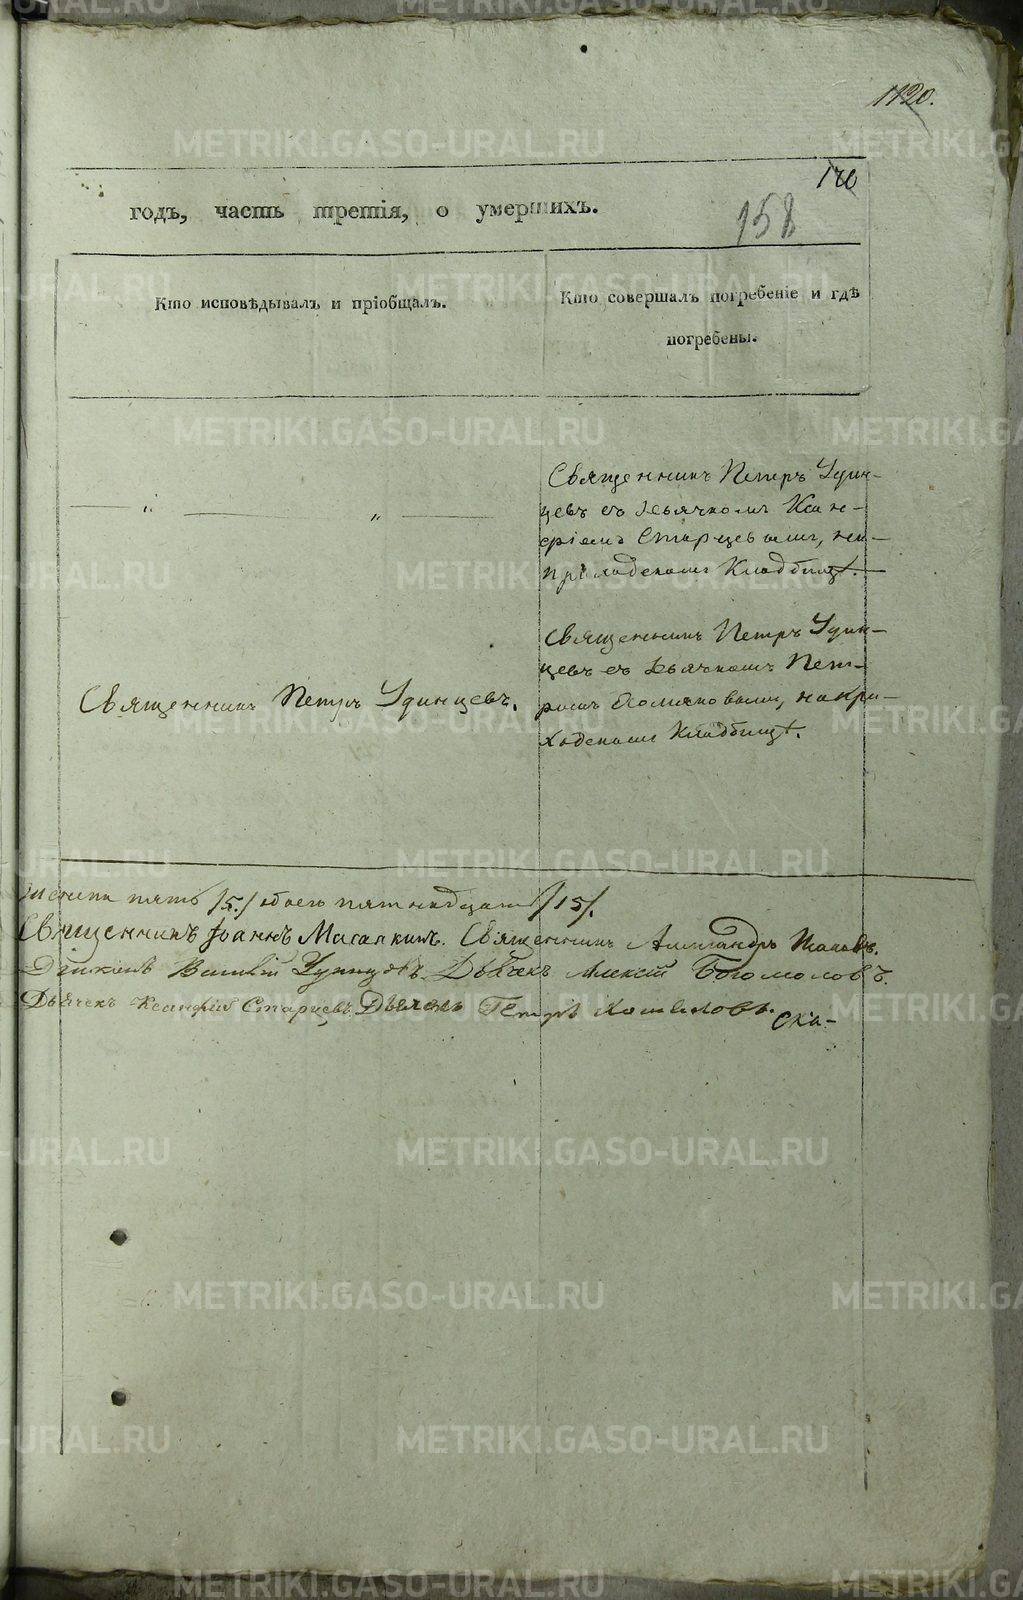 1120.
годъ, часть третія, о умершихъ.
158
Кто исповѣдывалъ и пріобщалъ.
Кто совершалъ погребеніе и гдѣ
погребены.
Священникъ Петръ Удин-
цевъ съ дьячкомъ Ксан-
фіемъ Старцевымъ, на
приходскомъ Кладбищѣ.
Священникъ Петръ Удинцевъ.
Священникъ Петръ Удин-
цевъ съ дьячкомъ Пет-
ромъ, на при-
ходскомъ Кладбищѣ.
пять /5./ обоего пятнадцать /15/.
Священникъ Іоаннъ Масалкинъ. Священникъ Александръ Поповъ.
Діаконъ Василій Удинцовъ. Дьячекъ Алексій Богомоловъ.
Дьячекъ Ксанфій Старцевъ. Дьячекъ Петръ
METRIKI.GASO-URAL.RU